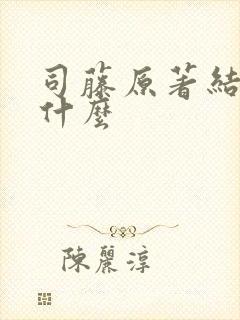 司藤原著結
什麼
陳麗淳